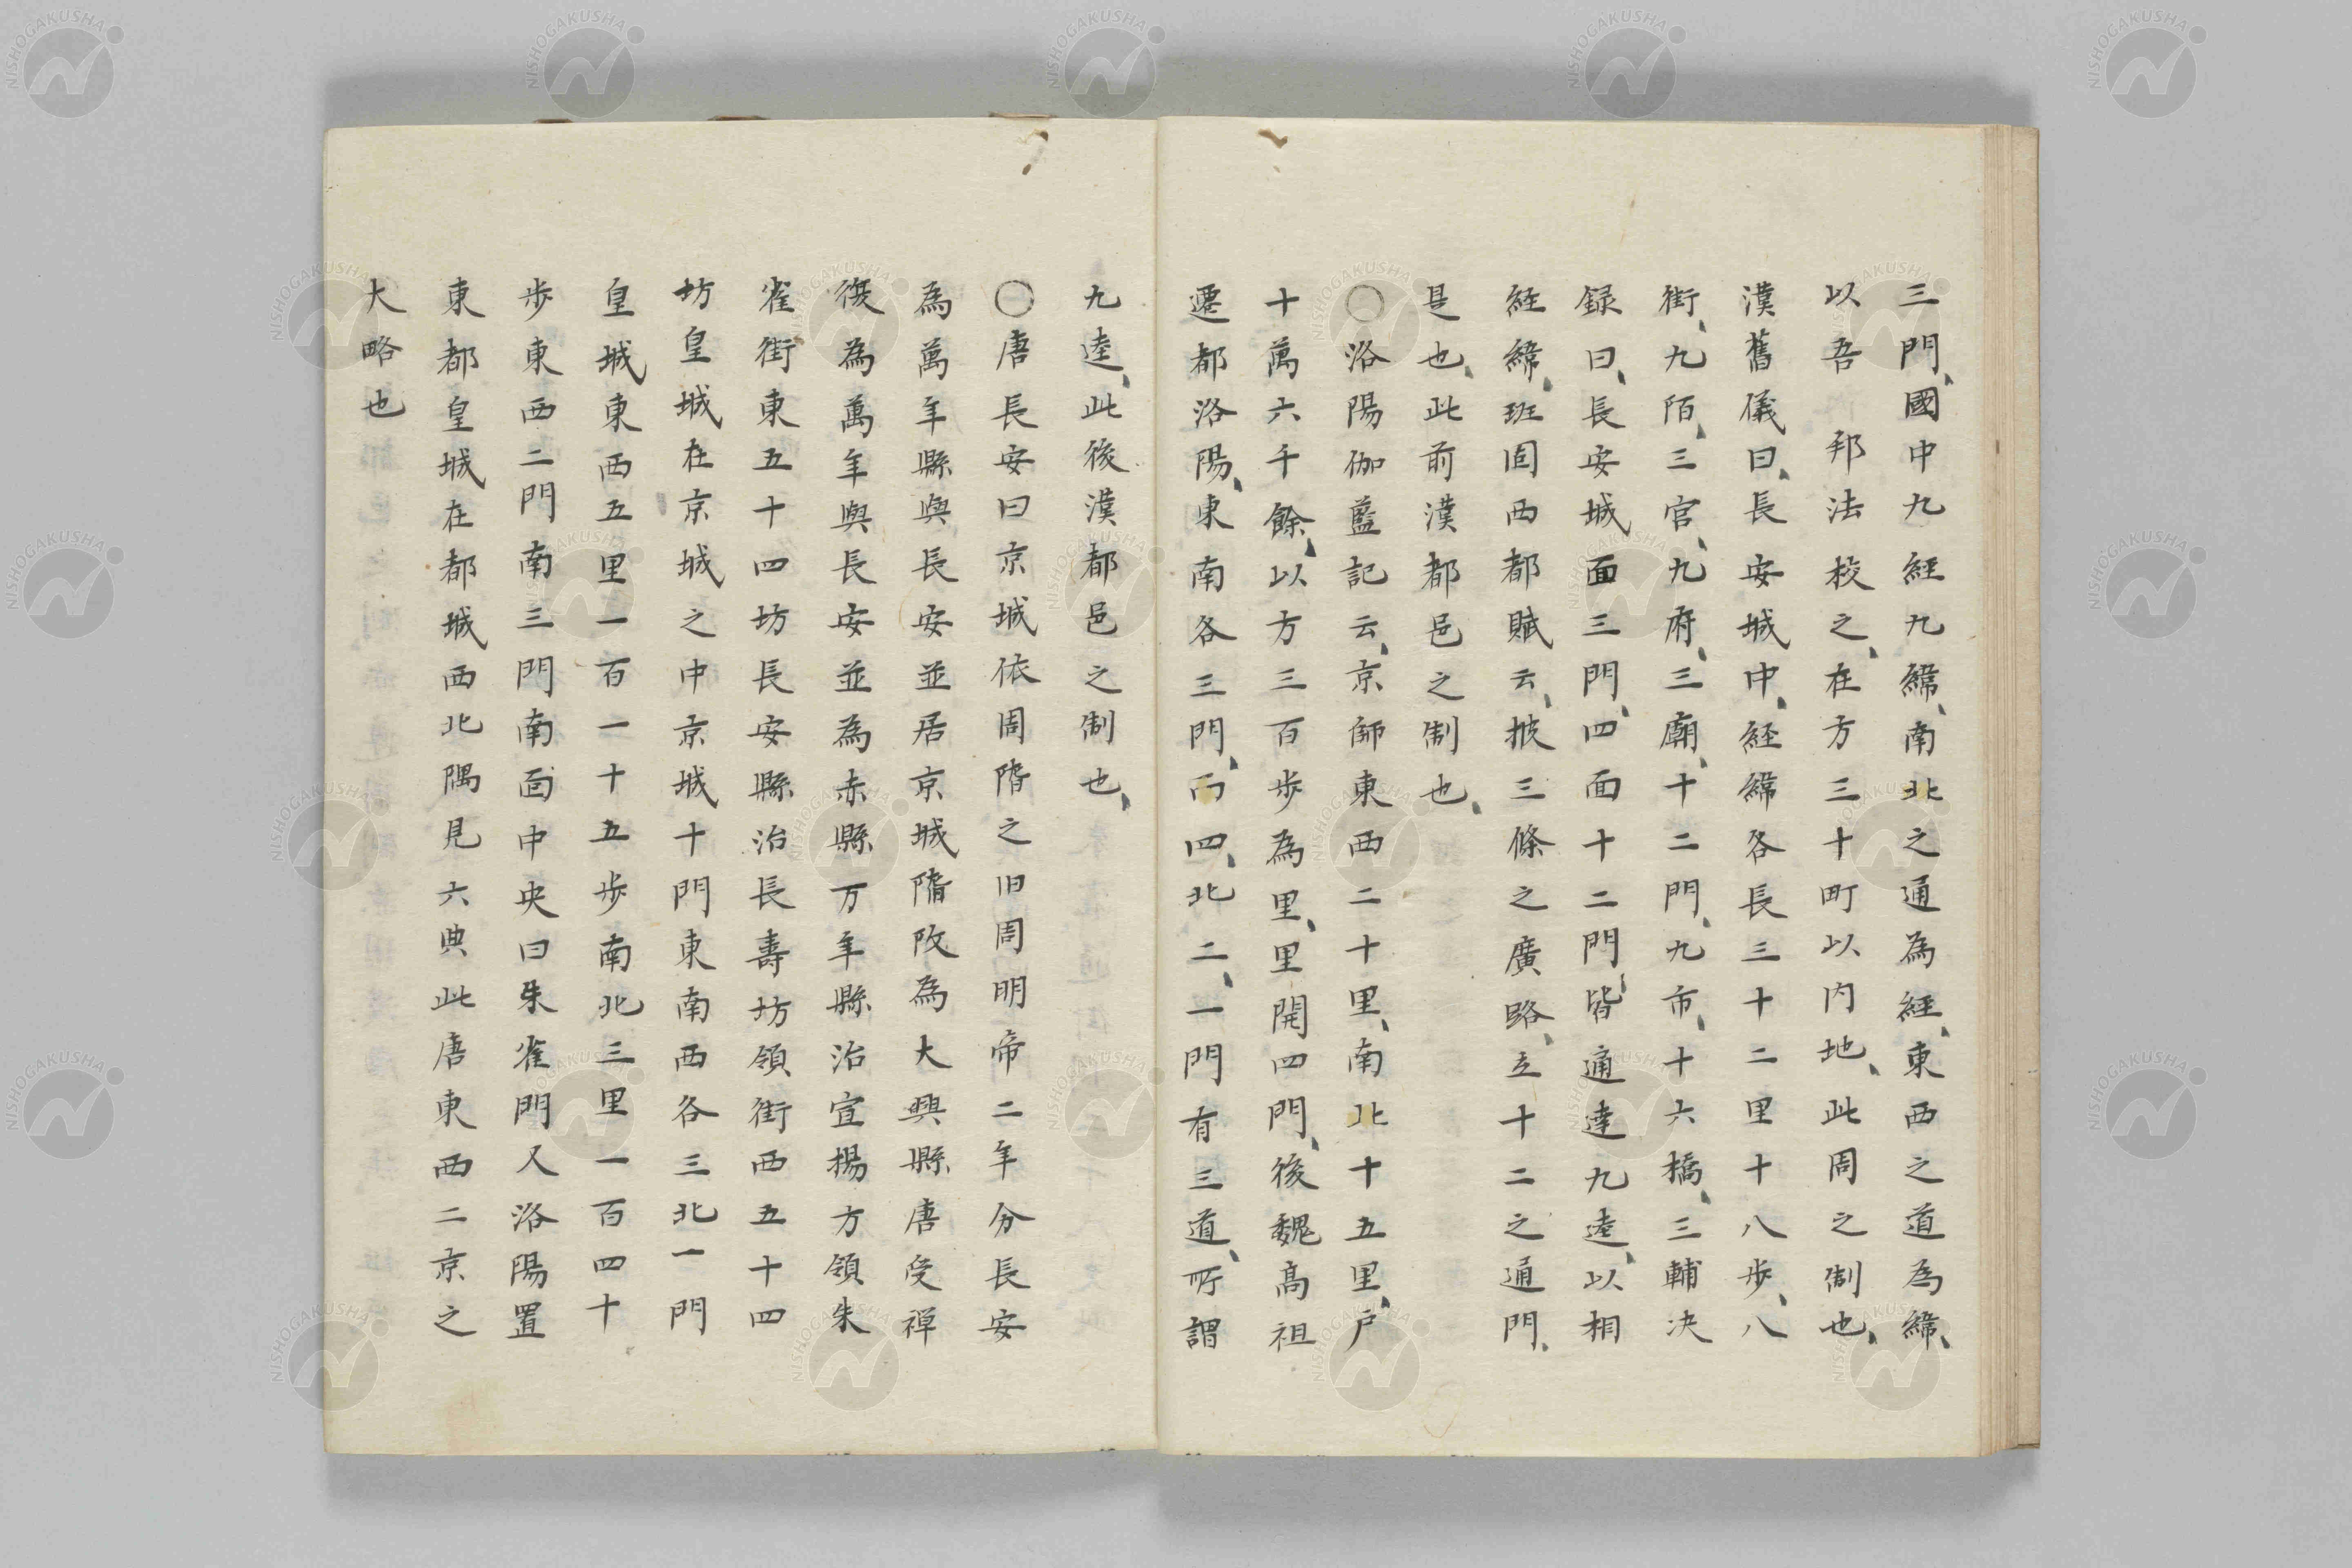 三門、國中九経九緯、南北之通為経、東西之道為緯、
以吾 邦法校之、在方三十町以内地、此周之制也、
漢舊儀曰、長安城中、経緯各長三十二里十八歩、八
街、九陌、三官、九府、三廟、十二門、九市、十六橋、三輔决
録曰、長安城面三門、四面十二門、皆通達九逵、以相
経緯、班固西都賦云、披三條之廣路、立十二之通門、
是也、此前漢都邑之制也、
〇洛陽伽藍記云、京師東西二十里、南北十五里、戸
十萬六千餘、以方三百歩為里、里開四門、後魏高祖
遷都洛陽、東南各三門、西四、北二、一門有三道、所謂
九逵、此後漢都邑之制也、
〇唐長安曰京城依周隋之旧周明帝二年分長安
為萬年縣與長安並居京城隋改為大興縣唐受禅
復為萬年與長安並為赤縣万年縣治宣揚方領朱
雀街東五十四坊長安縣治長壽坊領街西五十四
坊皇城在京城之中京城十門東南西各三北一門
皇城東西五里一百一十五歩南北三里一百四十
歩東西二門南三門南面中央曰朱雀門又洛陽置
東都皇城在都城西北隅見六典此唐東西二京之
大略也
NISHOGAKUSHA